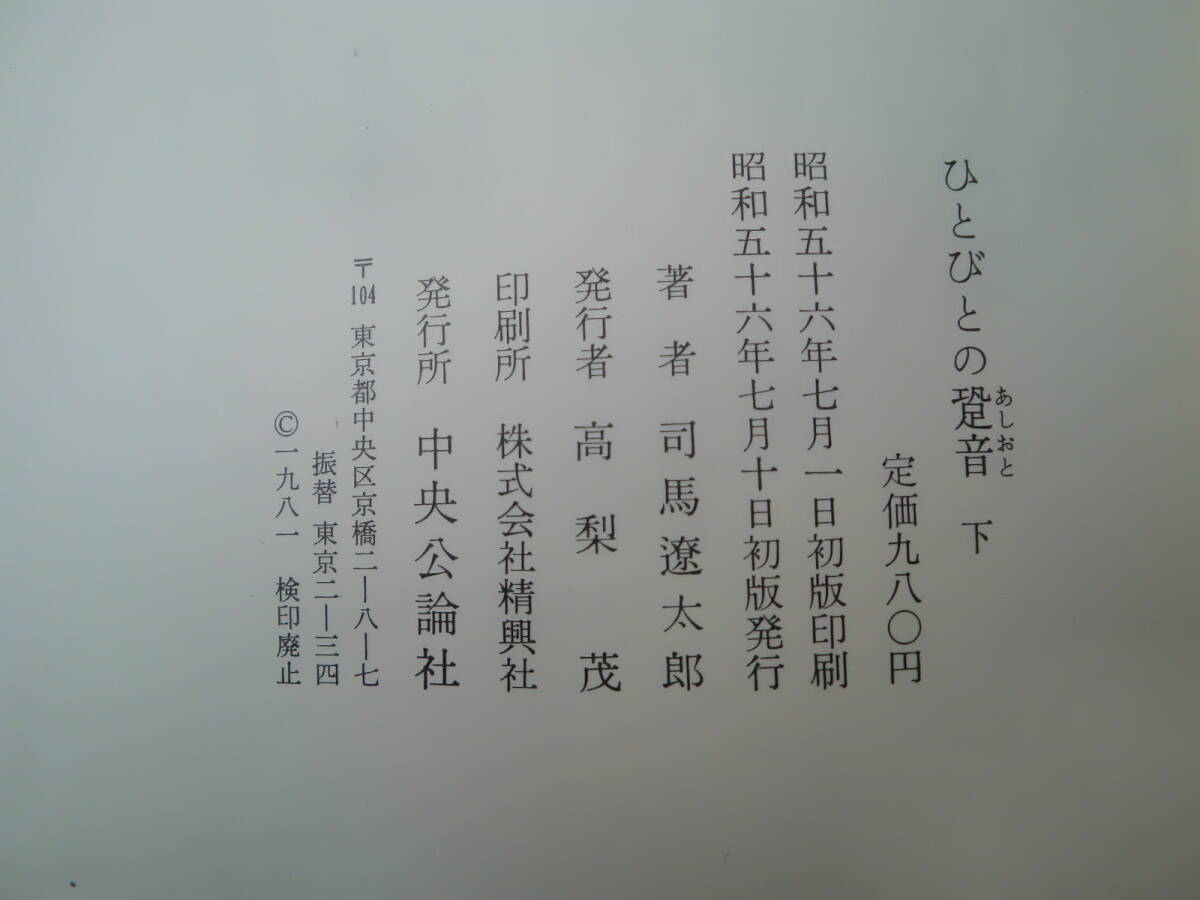 ひとびとの跫音 下
あしおと
定価九八〇円
昭和五十六年七月一日初版印刷
昭和五十六年七月十日初版発行
著者 司馬遼太郎
発行者 高梨茂
印刷所 株式会社精興社
発行所 中央公論社
〒104 東京都中央区京橋二―八―七
振替 東京二―三四
©一九八一 検印廃止